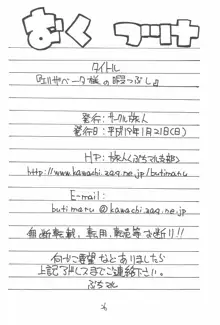 おくづけ
タイトル
『エリザベータ様の暇つぶし』
発行:サークル旅人
発行日:平成19年1月21日(日)
HP:旅人(ぶちまる支部)
http://www.kawachi.zaq.ne.jp/butimaru
E-mail:
butimaru@kawachi.zaq.ne.jp
無断転載、転用、転売等お断り!!
何かご要望などありましたら
上記アドレスまでご連絡下さい。
ぶちまる